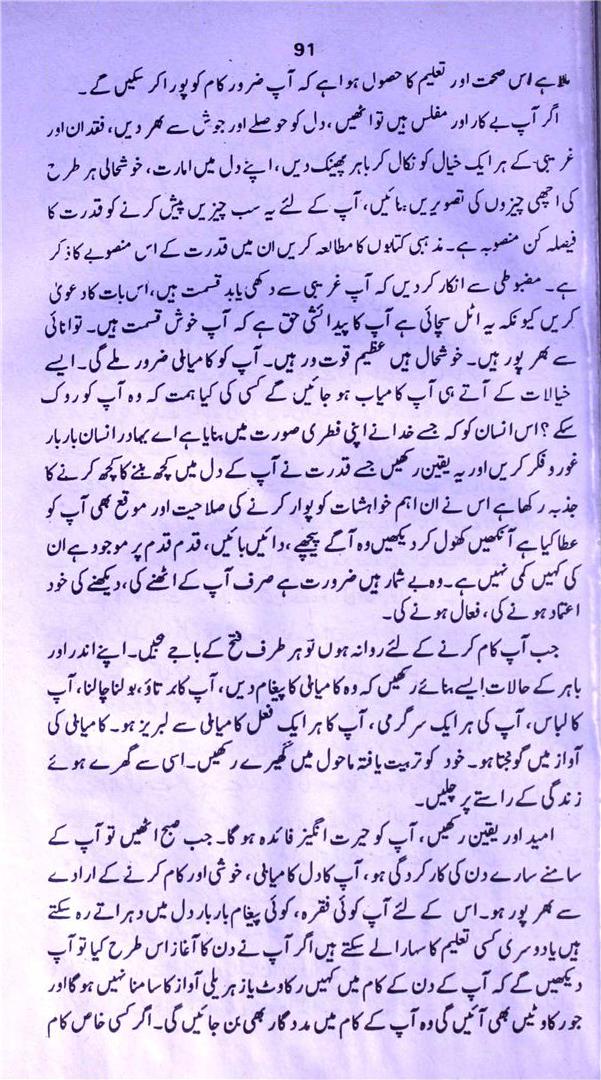 91
ملا ہے اس صحت اور تعلیم کا حصول ہوا ہے کہ آپ ضرور کام کو پورا کر سکیں گے۔
اگر آپ بے کار اور مفلس ہیں تو اٹھیں، دل کو حوصلے اور جوش سے بھر دیں، فقدان اور
غریبی کے ہر ایک خیال کو نکال کر باہر پھینک دیں، اپنے دل میں امارت، خوشحالی ہر طرح
کی اچھی چیزوں کی تصویریں بنائیں، آپ کے لئے یہ سب چیزیں پیش کرنے کو قدرت کا
فیصلہ کن منصوبہ ہے۔ مذہبی کتابوں کا مطالعہ کریں ان میں قدرت کے اس منصوبے کا ذکر
ہے۔ مضبوطی سے انکار کر دیں کہ آپ غریبی سے دکھی یا بد قسمت ہیں، اس بات کا دعویٰ
کریں کیونکہ یہ اٹل سچائی ہے آپ کا پیدائشی حق ہے کہ آپ خوش قسمت ہیں۔ توانائی
سے بھر پور ہیں۔ خوشحال ہیں عظیم قوت ور ہیں۔ آپ کو کامیابی ضرور ملے گی۔ ایسے
خیالات کے آتے ہی آپ کامیاب ہو جائیں گے کسی کی کیا ہمت کہ وہ آپ کو روک
سکے؟ اس انسان کو کہ جسے خدا نے اپنی فطری صورت میں بنایا ہے اے بہادر انسان بار بار
غور و فکر کریں اور یہ یقین رکھیں جسے قدرت نے آپ کے دل میں کچھ بننے کا کچھ کرنے کا
جذبہ رکھا ہے اس نے ان اہم خواہشات کو پوار کرنے کی صلاحیت اور موقع بھی آپ کو
عطا کیا ہے آنکھیں کھول کر دیکھیں وہ آگے پیچھے، دائیں بائیں، قدم قدم پر موجود ہے ان
کی کہیں کمی نہیں ہے۔ وہ بے شمار ہیں ضرورت ہے صرف آپ کے اٹھنے کی، دیکھنے کی خود
اعتماد ہونے کی، فعال ہونے کی۔
جب آپ کام کرنے کے لئے روانہ ہوں تو ہر طرف فتح کے باجے بجیں۔ اپنے اندر اور
باہر کے حالات ایسے بنائے رکھیں کہ وہ کامیابی کا پیغام دیں، آپ کا برتاؤ، بولنا چالنا، آپ
کا لباس، آپ کی ہر ایک سرگرمی، آپ کا ہر ایک فعل کامیابی سے لبریز ہو۔ کامیابی کی
آواز میں گونجتا ہو۔ خود کو تربیت یافتہ ماحول میں گھیرے رکھیں۔ اسی سے گھرے ہوئے
زندگی کے راستے پر چلیں۔
امید اور یقین رکھیں، آپ کو حیرت انگیز فائدہ ہو گا۔ جب صبح اٹھیں تو آپ کے
سامنے سارے دن کی کارکردگی ہو، آپ کا دل کامیابی، خوشی اور کام کرنے کے ارادے
سے بھر پور ہو۔ اس کے لئے آپ کوئی فقرہ، کوئی پیغام بار بار دل میں دہراتے رہ سکتے
ہیں یا دوسری کسی تعلیم کا سہارا لے سکتے ہیں اگر آپ نے دن کا آغاز اس طرح کیا تو آپ
دیکھیں گے کہ آپ کے دن کے کام میں کہیں رکاوٹ یا زہریلی آواز کا سامنا نہیں ہو گا اور
جو رکاوٹیں بھی آئیں گی وہ آپ کے کام میں مددگار بھی بن جائیں گی۔ اگر کسی خاص کام